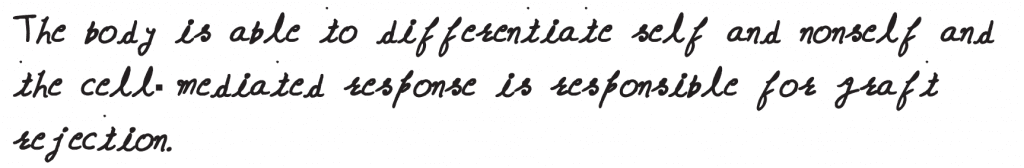 The body is able to differentiate self and nonself and
the cell-mediated response is responsible for graft
rejection.